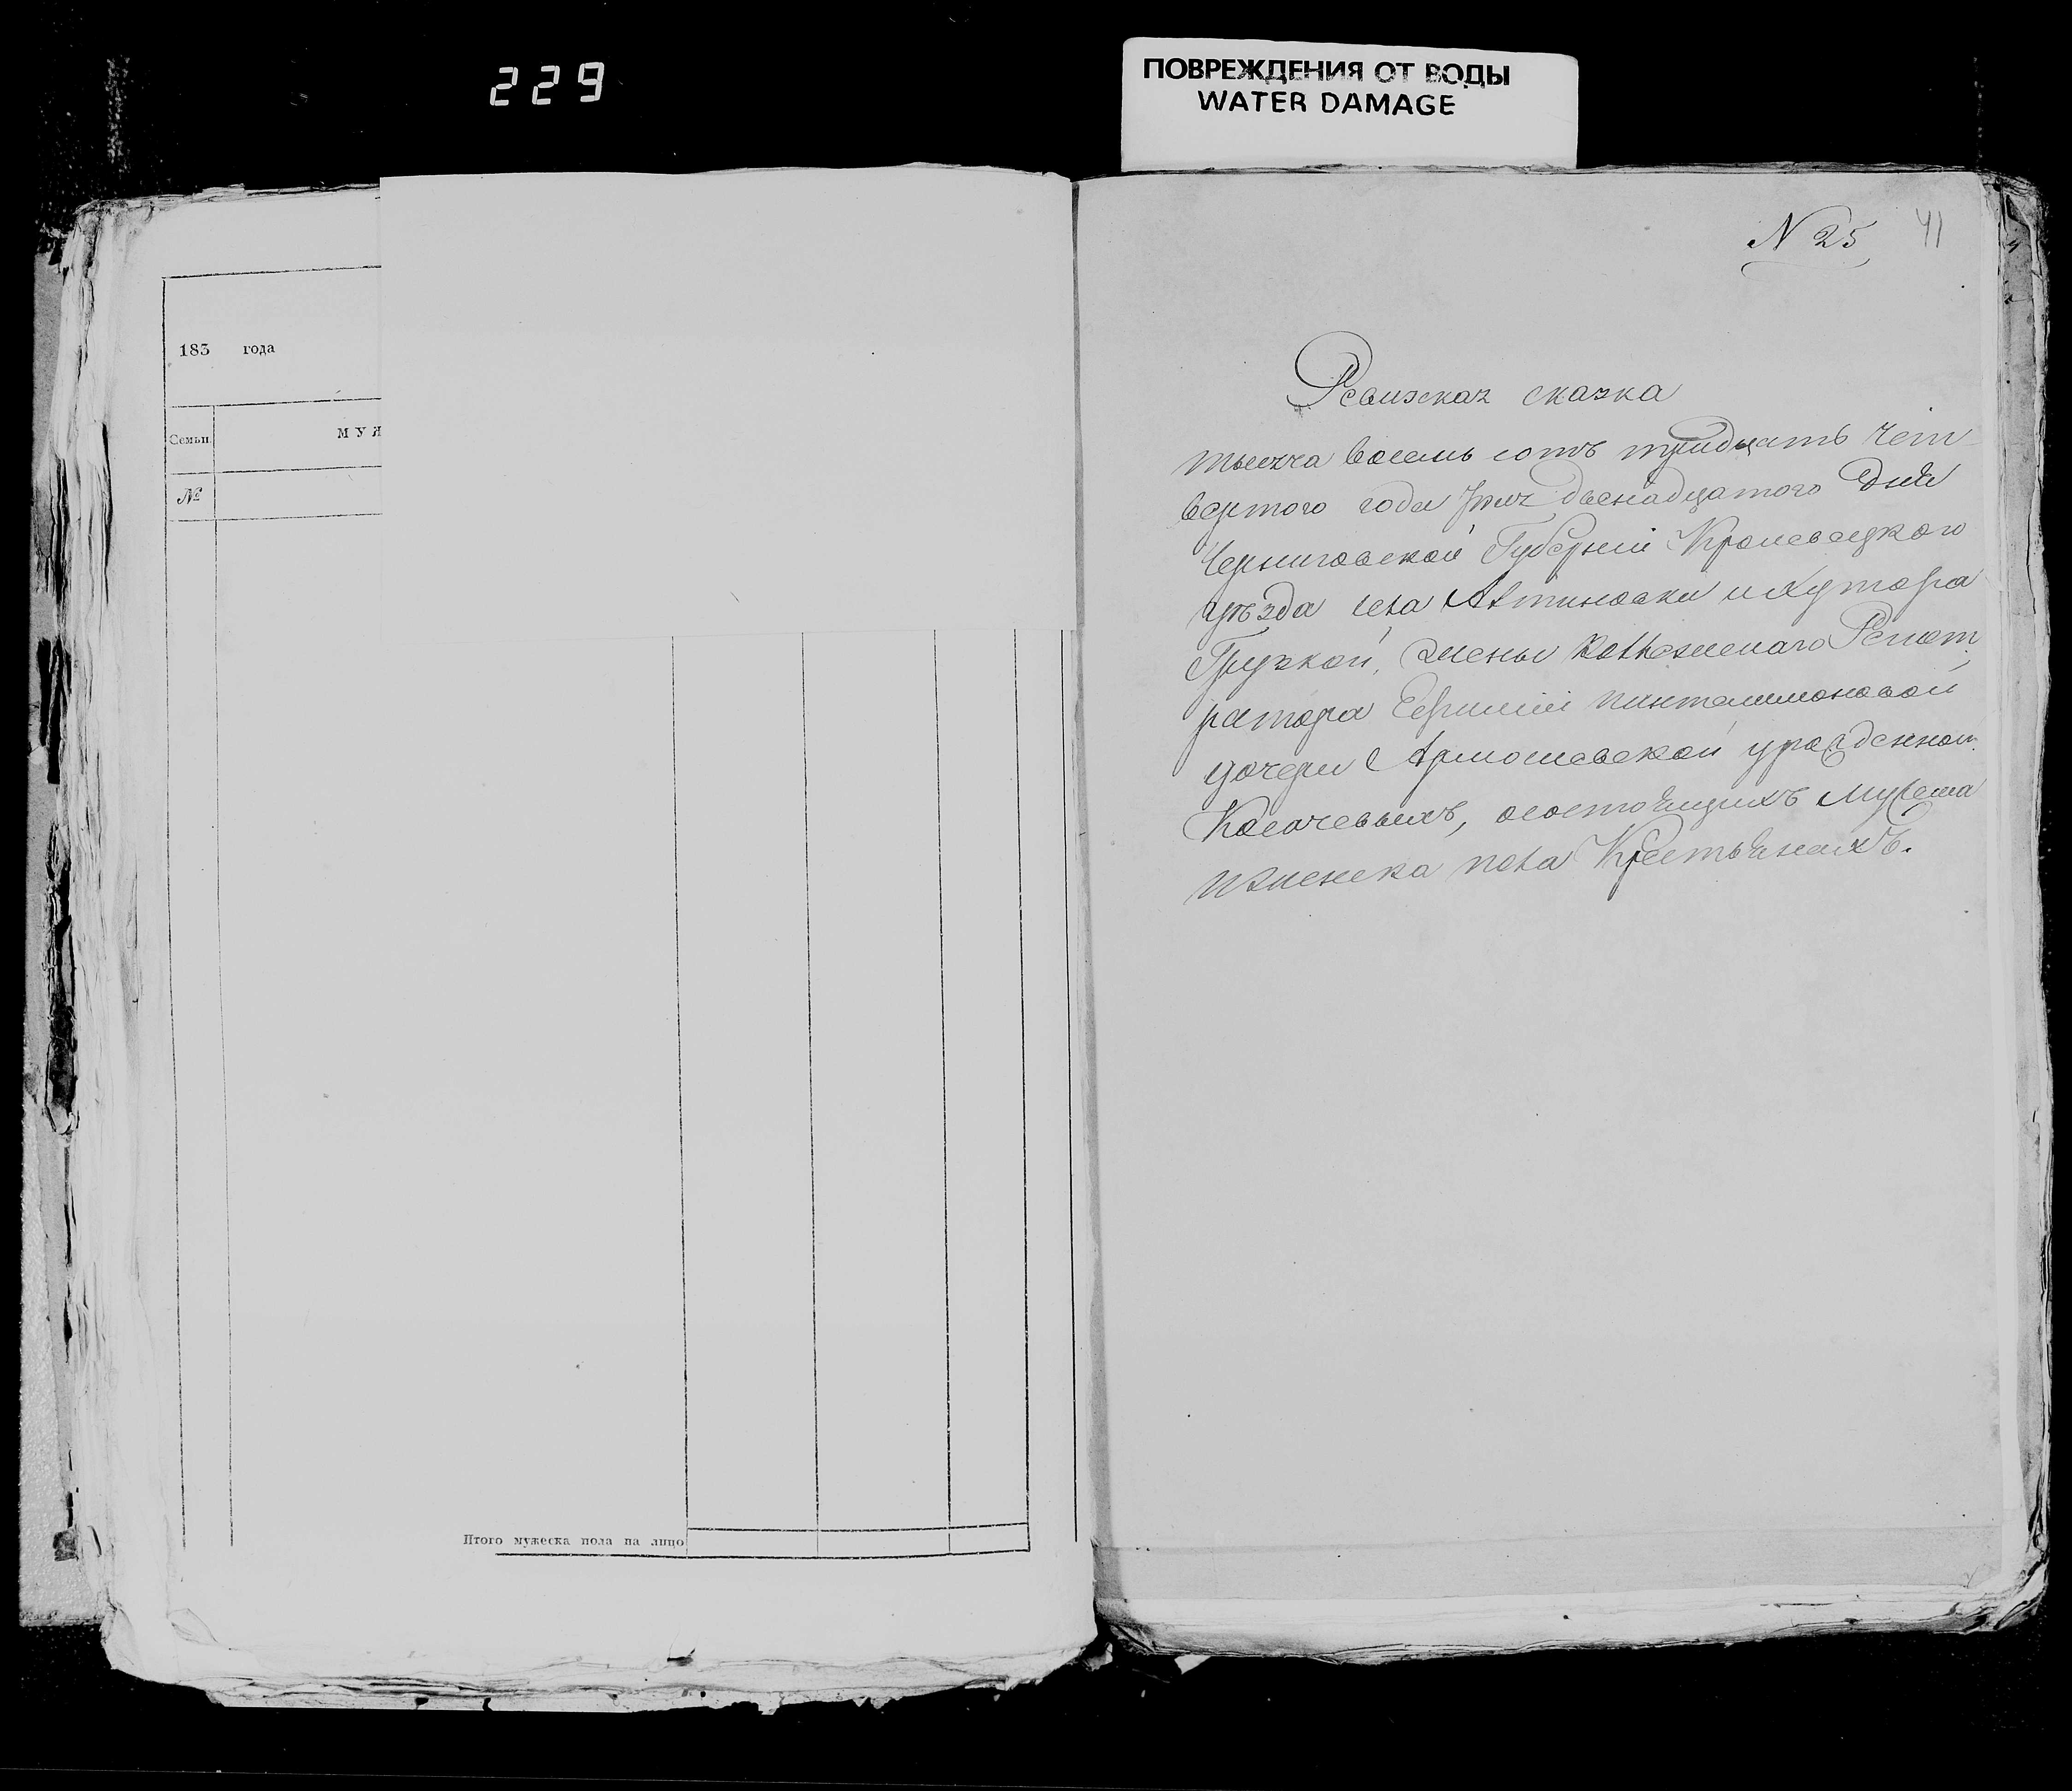 229
ПОВРЕЖДЕНИЯ ОТ ВОДЫ
WATER DAMAGE
183 года
Семьи. МУЖ
№
Итого мужеска пола на лицо
N 25
41
Ревизская сказка
тысяча восемь сотъ тридцать чет
вертого года двенадцатого дня
Черниговской Губернии Кролевецкого
уѣзда села Алтиновки и хутора
Грузкой, жены Коллежскаго Регист
ратора Ефимии пинталимоновой
дочери Ярмошевской урожденной
Косачевыхъ, осостоящихъ мужеска
иженска пола Крестьянахъ.